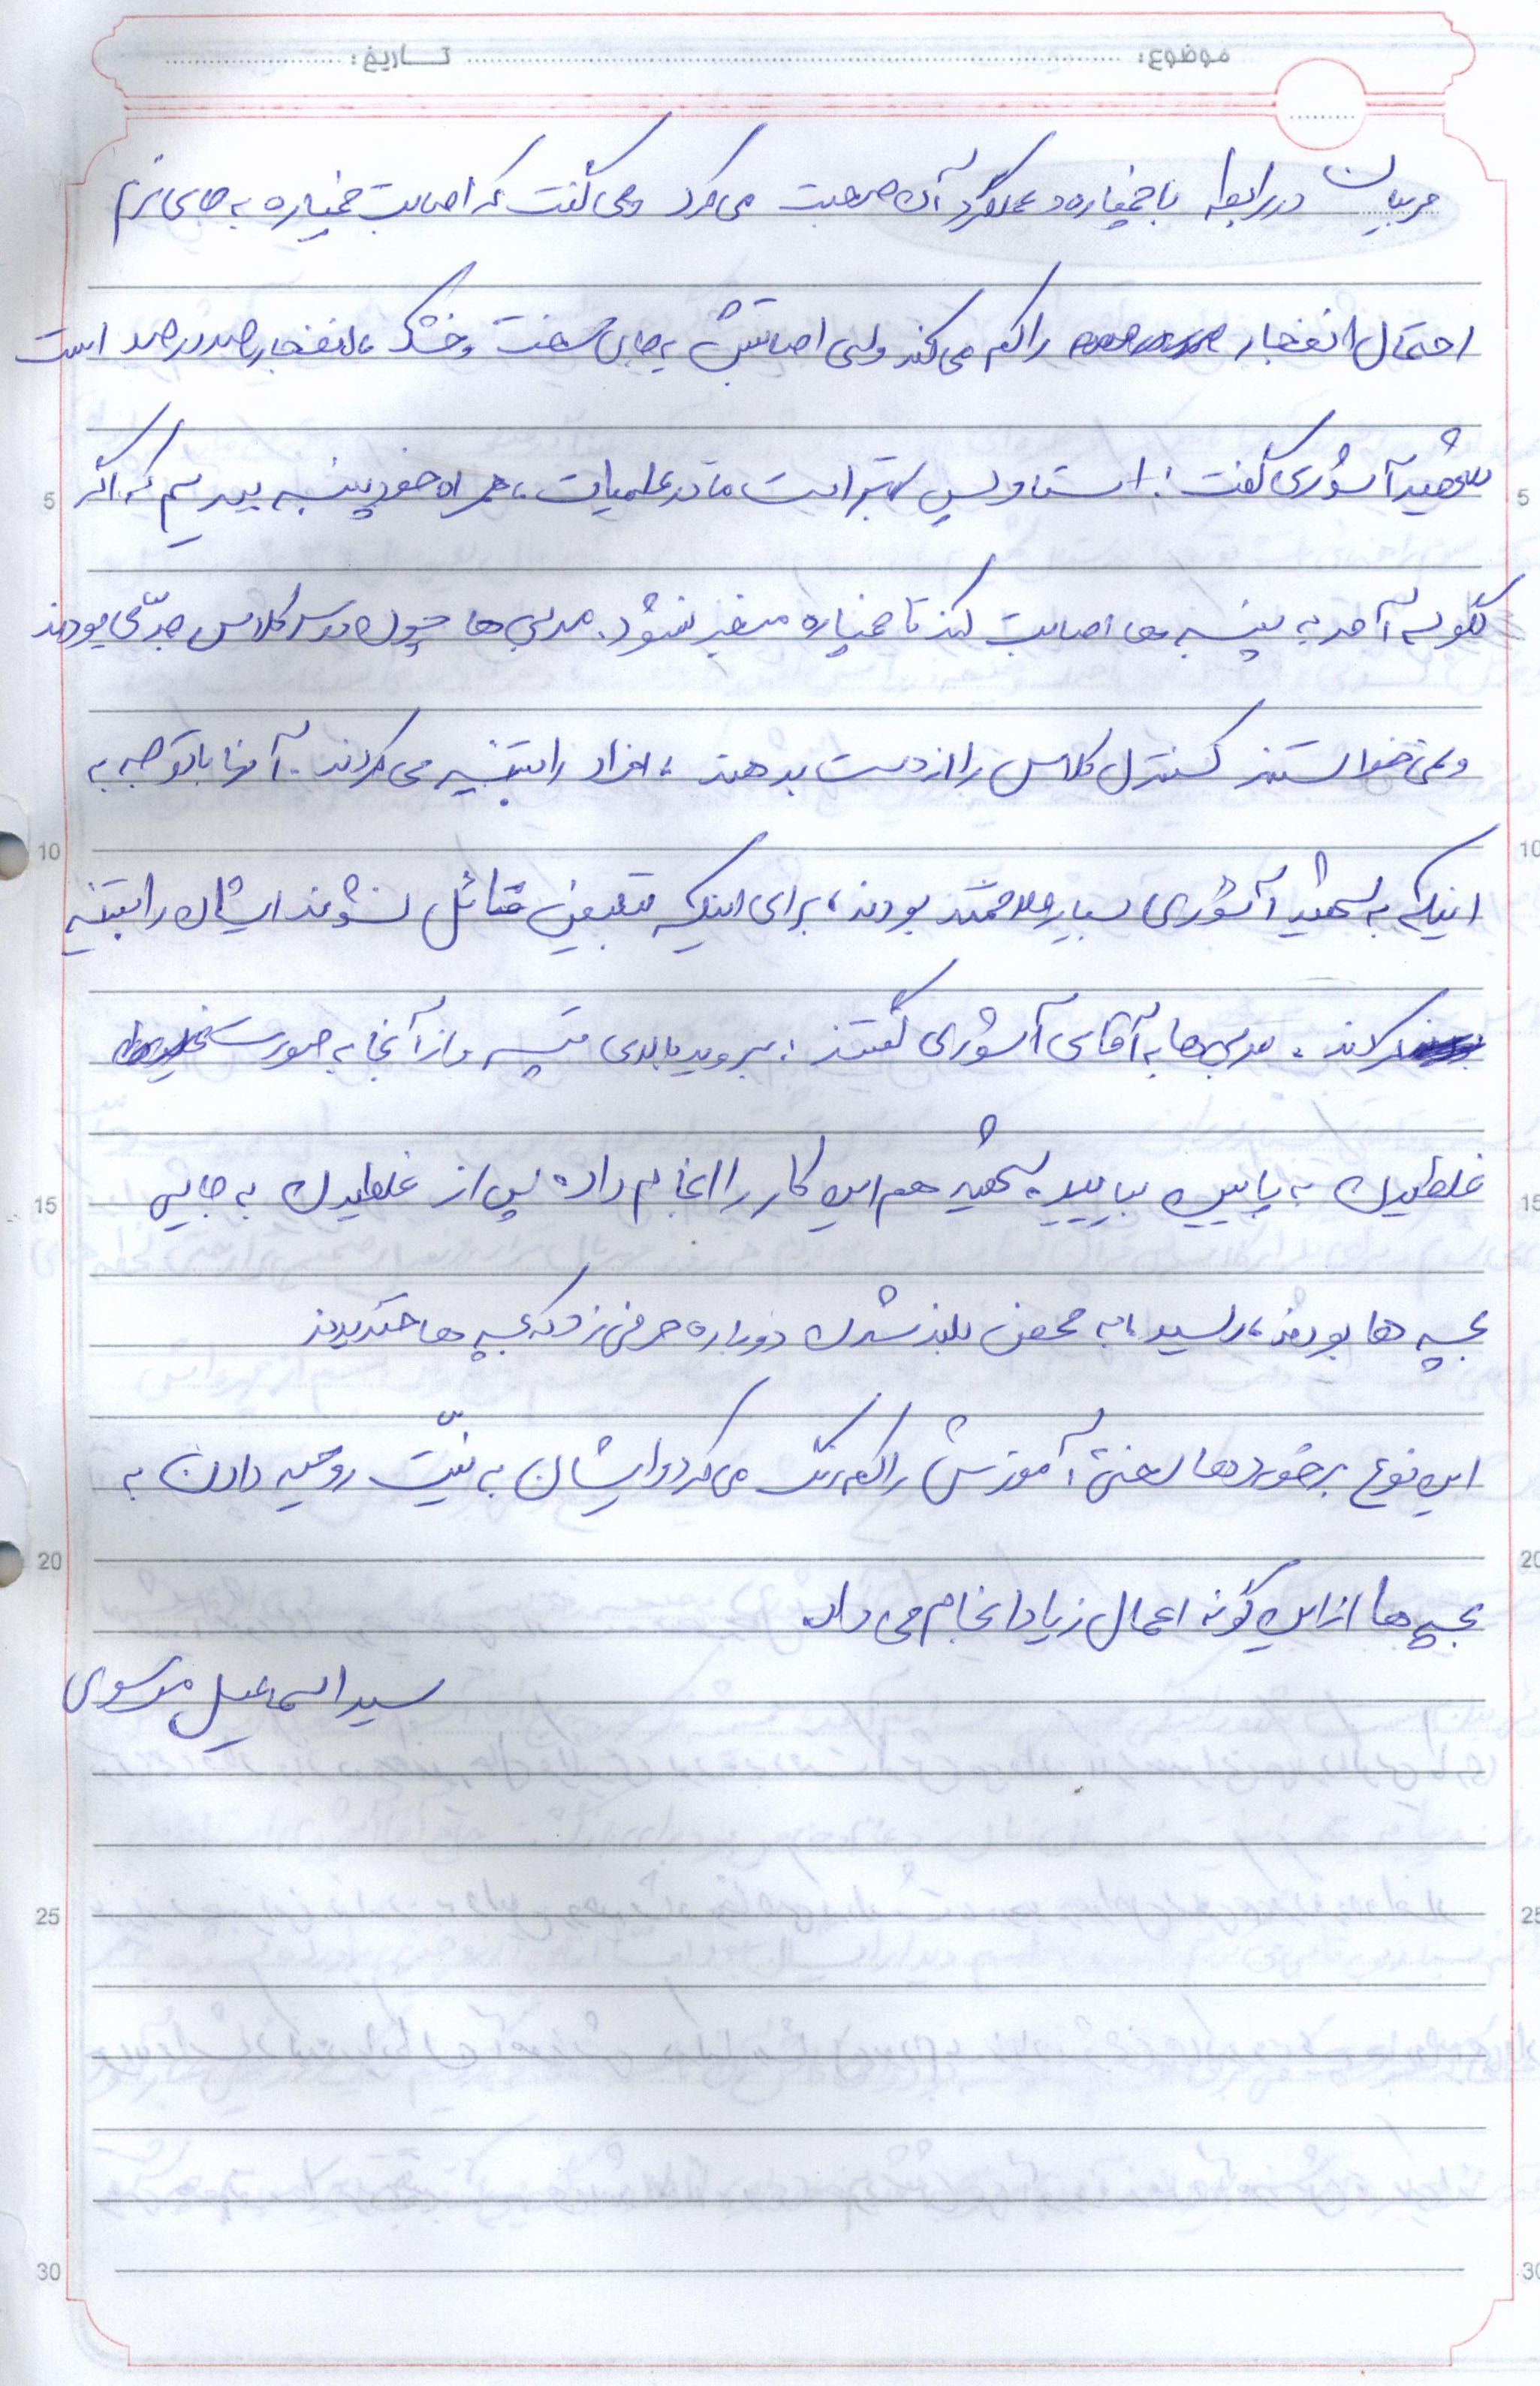 موضوع: تاریخ:
مربیان در رابطه با خمپاره و عملکرد آن صحبت می کرد و می گفت که اصابت خمپاره به جای نرم
احتمال انفجار را کم می کند ولی اصابتش به جای سخت و خشک، انفجار صد در صد است
شهید آشوری گفت: استاد پس بهتر است ما در عملیات، همراه خود پنبه ببریم که اگر
گلوله آمد به پنبه ها اصابت کند تا خمپاره منفجر نشود. مربی ها چون در سر کلاس جدّی بودند
و نمی خواستند کنترل کلاس را از دست بدهند، افراد را تنبیه می کردند. آنها با توجه به
اینکه به شهید آشوری بسیار علاقمند بودند، برای اینکه تبعیض قائل نشوند ایشان را تنبیه
کردند. مربی ها به آقای آشوری گفتند: بروید بالای تپه و از آنجا به صورت
غلطیدن به پایین بیایید، شهید هم این کار را انجام داد، پس از غلطیدن به جایی
بچه ها بودند، رسید، به محض بلند شدن دوباره حرفی زد که بچه ها خندیدند
این نوع برخوردها سختی آموزش را کم رنگ می کرد و ایشان به نیّت روحیه دادن به
بچه ها از این گونه اعمال زیاد انجام می داد.
سید اسماعیل موسوی
5 5
10 10
15 15
20 20
25 25
30 30